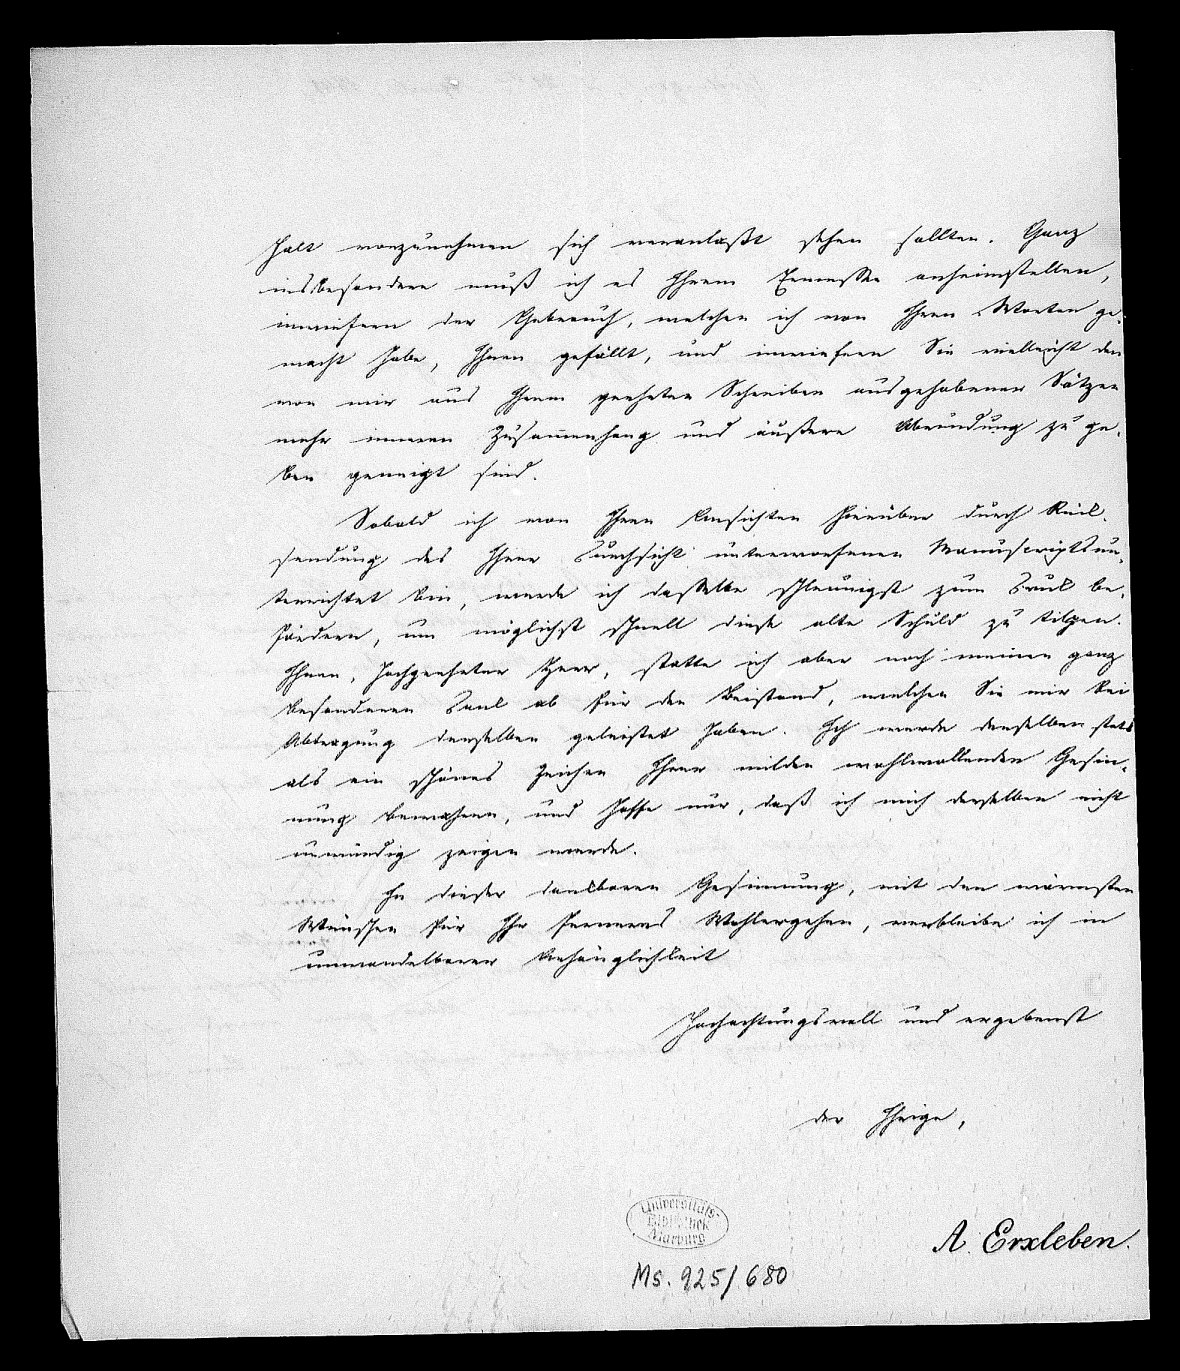 halt vorzunehmen sich veranlaßt sehen sollten. Ganz
insbesondere muß ich es Ihrem Ermessen anheimstellen,
inwiefern der Gebrauch, welchen ich von Ihren Worten ge-
macht habe, Ihnen gefällt, und inwiefern Sie vielleicht den
von mir aus Ihrem geehrten Schreiben ausgehobenen Sätzen
mehr inneren Zusammenhang und äußere Abrundung zu ge-
ben geneigt sind.
Sobald ich von Ihren Ansichten hierüber durch Rück-
sendung des Ihrer Durchsicht unterworfenen Manuscripts un-
terrichtet bin, werde ich dasselbe schleunigst zum Druck be-
fördern, um möglichst schnell diese alte Schuld zu tilgen.
Ihnen, hochgeehrter Herr, statte ich aber noch meinen ganz
besonderen Dank ab für den Beistand, welchen Sie mir bei
Abtragung derselben geleistet haben. Ich werde denselben stets
als ein schönes Zeichen Ihrer milden wohlwollenden Gesin-
nung bewahren, und hoffe nur, daß ich mich derselben nicht
unwürdig zeigen werde.
In dieser dankbaren Gesinnung, mit den wärmsten
Wünschen für Ihr ferneres Wohlergehen, verbleibe ich in
unwandelbarer Anhänglichkeit
Hochachtungsvoll und ergebenst
der Ihrige,
A. Erxleben.
Universitäts-
Bibliothek
Marburg
Ms. 925/680